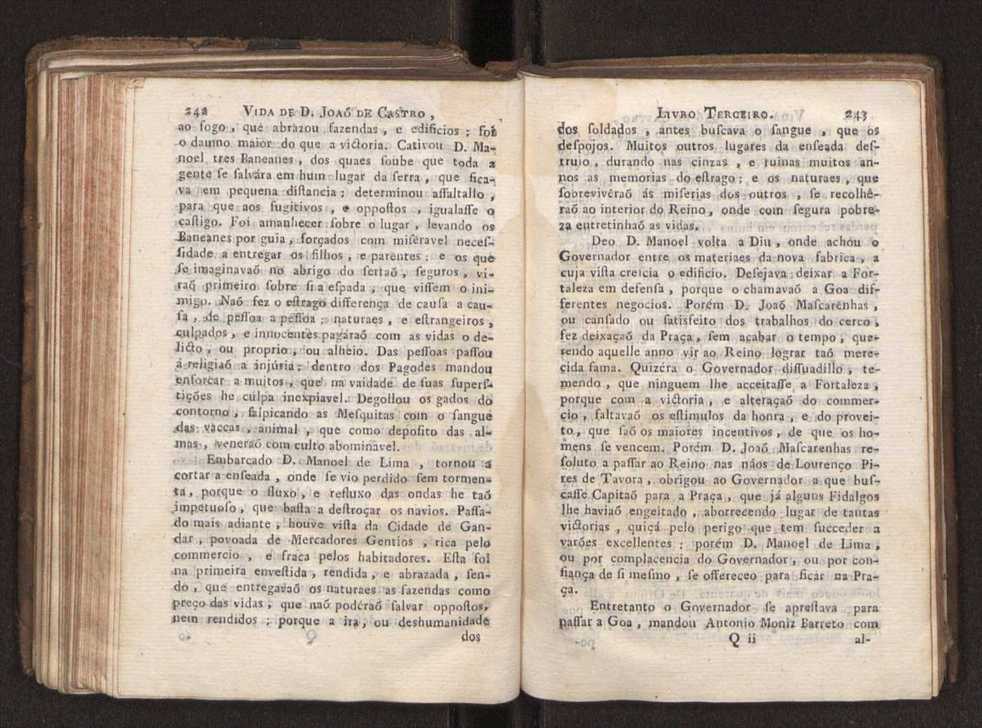 242 VIDA DE D. JOAÕ DE CASTRO ,
ao fogo , que abrazou fazendas , e edificios ; foi
o damno maior do que a victoria. Cativou D. Ma-
noel tres Baneanes , dos quaes soube que toda a
gente se salvára em hum lugar da serra , que fica-
va em pequena distancia ; determinou assaltallo ,
para que aos fugitivos , e oppostos , igualasse o
castigo. Foi amanhecer sobre o lugar , levando os
Baneanes por guia , forçados com miseravel neces-
sidade a entregar os filhos , e parentes ; e os que
se imaginavaõ no abrigo do sertaõ , seguros , vi-
raõ primeiro sobre si a espada , que vissem o ini-
migo. Naõ fez o estrago differença de causa a cau-
sa , de pessoa a pessoa ; naturaes , e estrangeiros ,
culpados , e innocentes pagáraõ com as vidas o de-
licto , ou proprio , ou alheio. Das pessoas passou
á religiaõ a injúria ; dentro dos Pagodes mandou
enforcar a muitos , que na vaidade de suas supers-
tições he culpa inexpiavel. Degollou os gados do
contorno , salpicando as Mesquitas com o sangue
das vaccas , animal , que como deposito das al-
mas , veneraõ com culto abominavel.
Embarcado D. Manoel de Lima , tornou a
cortar a enseada , onde se vio perdido sem tormen-
ta , porque o fluxo , e refluxo das ondas he taõ
impetuoso , que basta a destroçar os navios. Passa-
do mais adiante , houve vista da Cidade de Gan-
dar , povoada de Mercadores Gentios , rica pelo
commercio , e fraca pelos habitadores. Esta foi
na primeira envestida , rendida , e abrazada , sen-
do , que entregavaõ os naturaes as fazendas como
preço das vidas , que naõ podéraõ salvar oppostos,
nem rendidos ; porque a ira , ou deshumanidade
dos
LIVRO TERCEIRO. 243
dos soldados , antes buscava o sangue , que os
despojos. Muitos outros lugares da enseada des-
truio , durando nas cinzas , e ruinas muitos an-
nos as memorias do estrago ; e os naturaes , que
sobrevivêraõ ás miserias dos outros , se recolhê-
raõ ao interior do Reino , onde com segura pobre-
za entretinhaõ as vidas.
Deo D. Manoel volta a Diu , onde achou o
Governador entre os materiaes da nova fabrica , a
cuja vista crescia o edificio. Desejava deixar a For-
taleza em defensa , porque o chamavaõ a Goa dif-
ferentes negocios. Porém D. Joaõ Mascarenhas ,
ou cansado ou satisfeito dos trabalhos do cerco ,
fez deixaçaõ da Praça , sem acabar o tempo , que-
rendo aquelle anno vir ao Reino lograr taõ mere-
cida fama. Quizéra o Governador dissuadillo , te-
mendo , que ninguem lhe acceitasse a Fortaleza ,
porque com a victoria , e alteraçaõ do commer-
cio , faltavaõ os estimulos da honra , e do provei-
to , que saõ os maiores incentivos , de que os ho-
mens se vencem. Porém D. Joaõ Mascarenhas re-
soluto a passar ao Reino nas náos de Lourenço Pi-
res de Tavora , obrigou ao Governador a que bus-
casse Capitaõ para a Praça , que já alguns Fidalgos
lhe haviaõ engeitado , aborrecendo lugar de tantas
victorias , quiçá pelo perigo que tem succeder a
varões excellentes ; porém D. Manoel de Lima ,
ou por complacencia do Governador , ou por con-
fiança de si mesmo , se offereceo para ficar na Pra-
ça.
Entretanto o Governador se aprestava para
passar a Goa , mandou Antonio Moniz Barreto com
Q ii al-